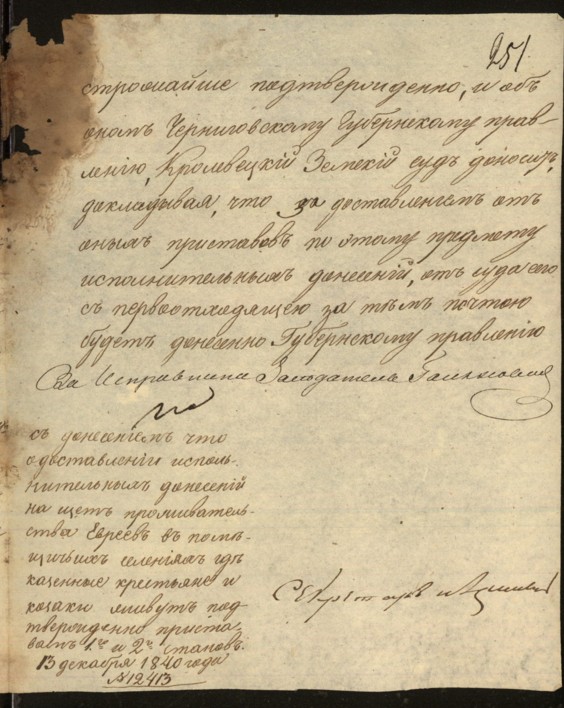 251
строжайше подтверожденно, и объ
ономъ Черниговскому Губернскому прав-
ленію, Кролевецкій Земскій судъ доноситъ,
докладывая, что за доставленіемъ отъ
оныхъ приставовъ по этому предмету
исполнительныхъ донесеній, отъ суда сего
съ первоотходящею за тѣмъ почтою
будетъ донесенно Губернскому правленію
За Исправника Засѣдатель
съ донесеніемъ что
о доставленіи исполь-
нительныхъ донесеній
на щетъ проживатель-
ства Евреевъ въ помѣ-
щичьихъ селеніяхъ гдѣ
казенные крестьяне и
козаки живутъ под-
твержденно приста-
вамъ 1го и 2го становъ.
13 декабря 1840 года
№12413
Секретарь